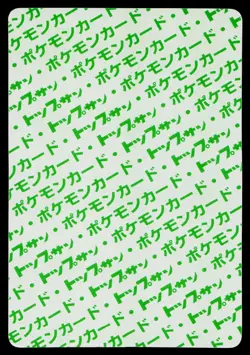 ポケモンカード・トップサン
トップサン・ポケモンカード
ポケモンカード・トップサン・
・トップサン・ポケモンカード
ポケモンカード・トップサン・
トップサン・ポケモンカード・
ポケモンカード・トップサン・
トップサン・ポケモンカード・
ポケモンカード・トップサン・
トップサン・ポケモンカード・
ポケモンカード・トップサン・
トップサン・ポケモンカード・
ポケモンカード・トップサン
トップサン・ポケモンカード